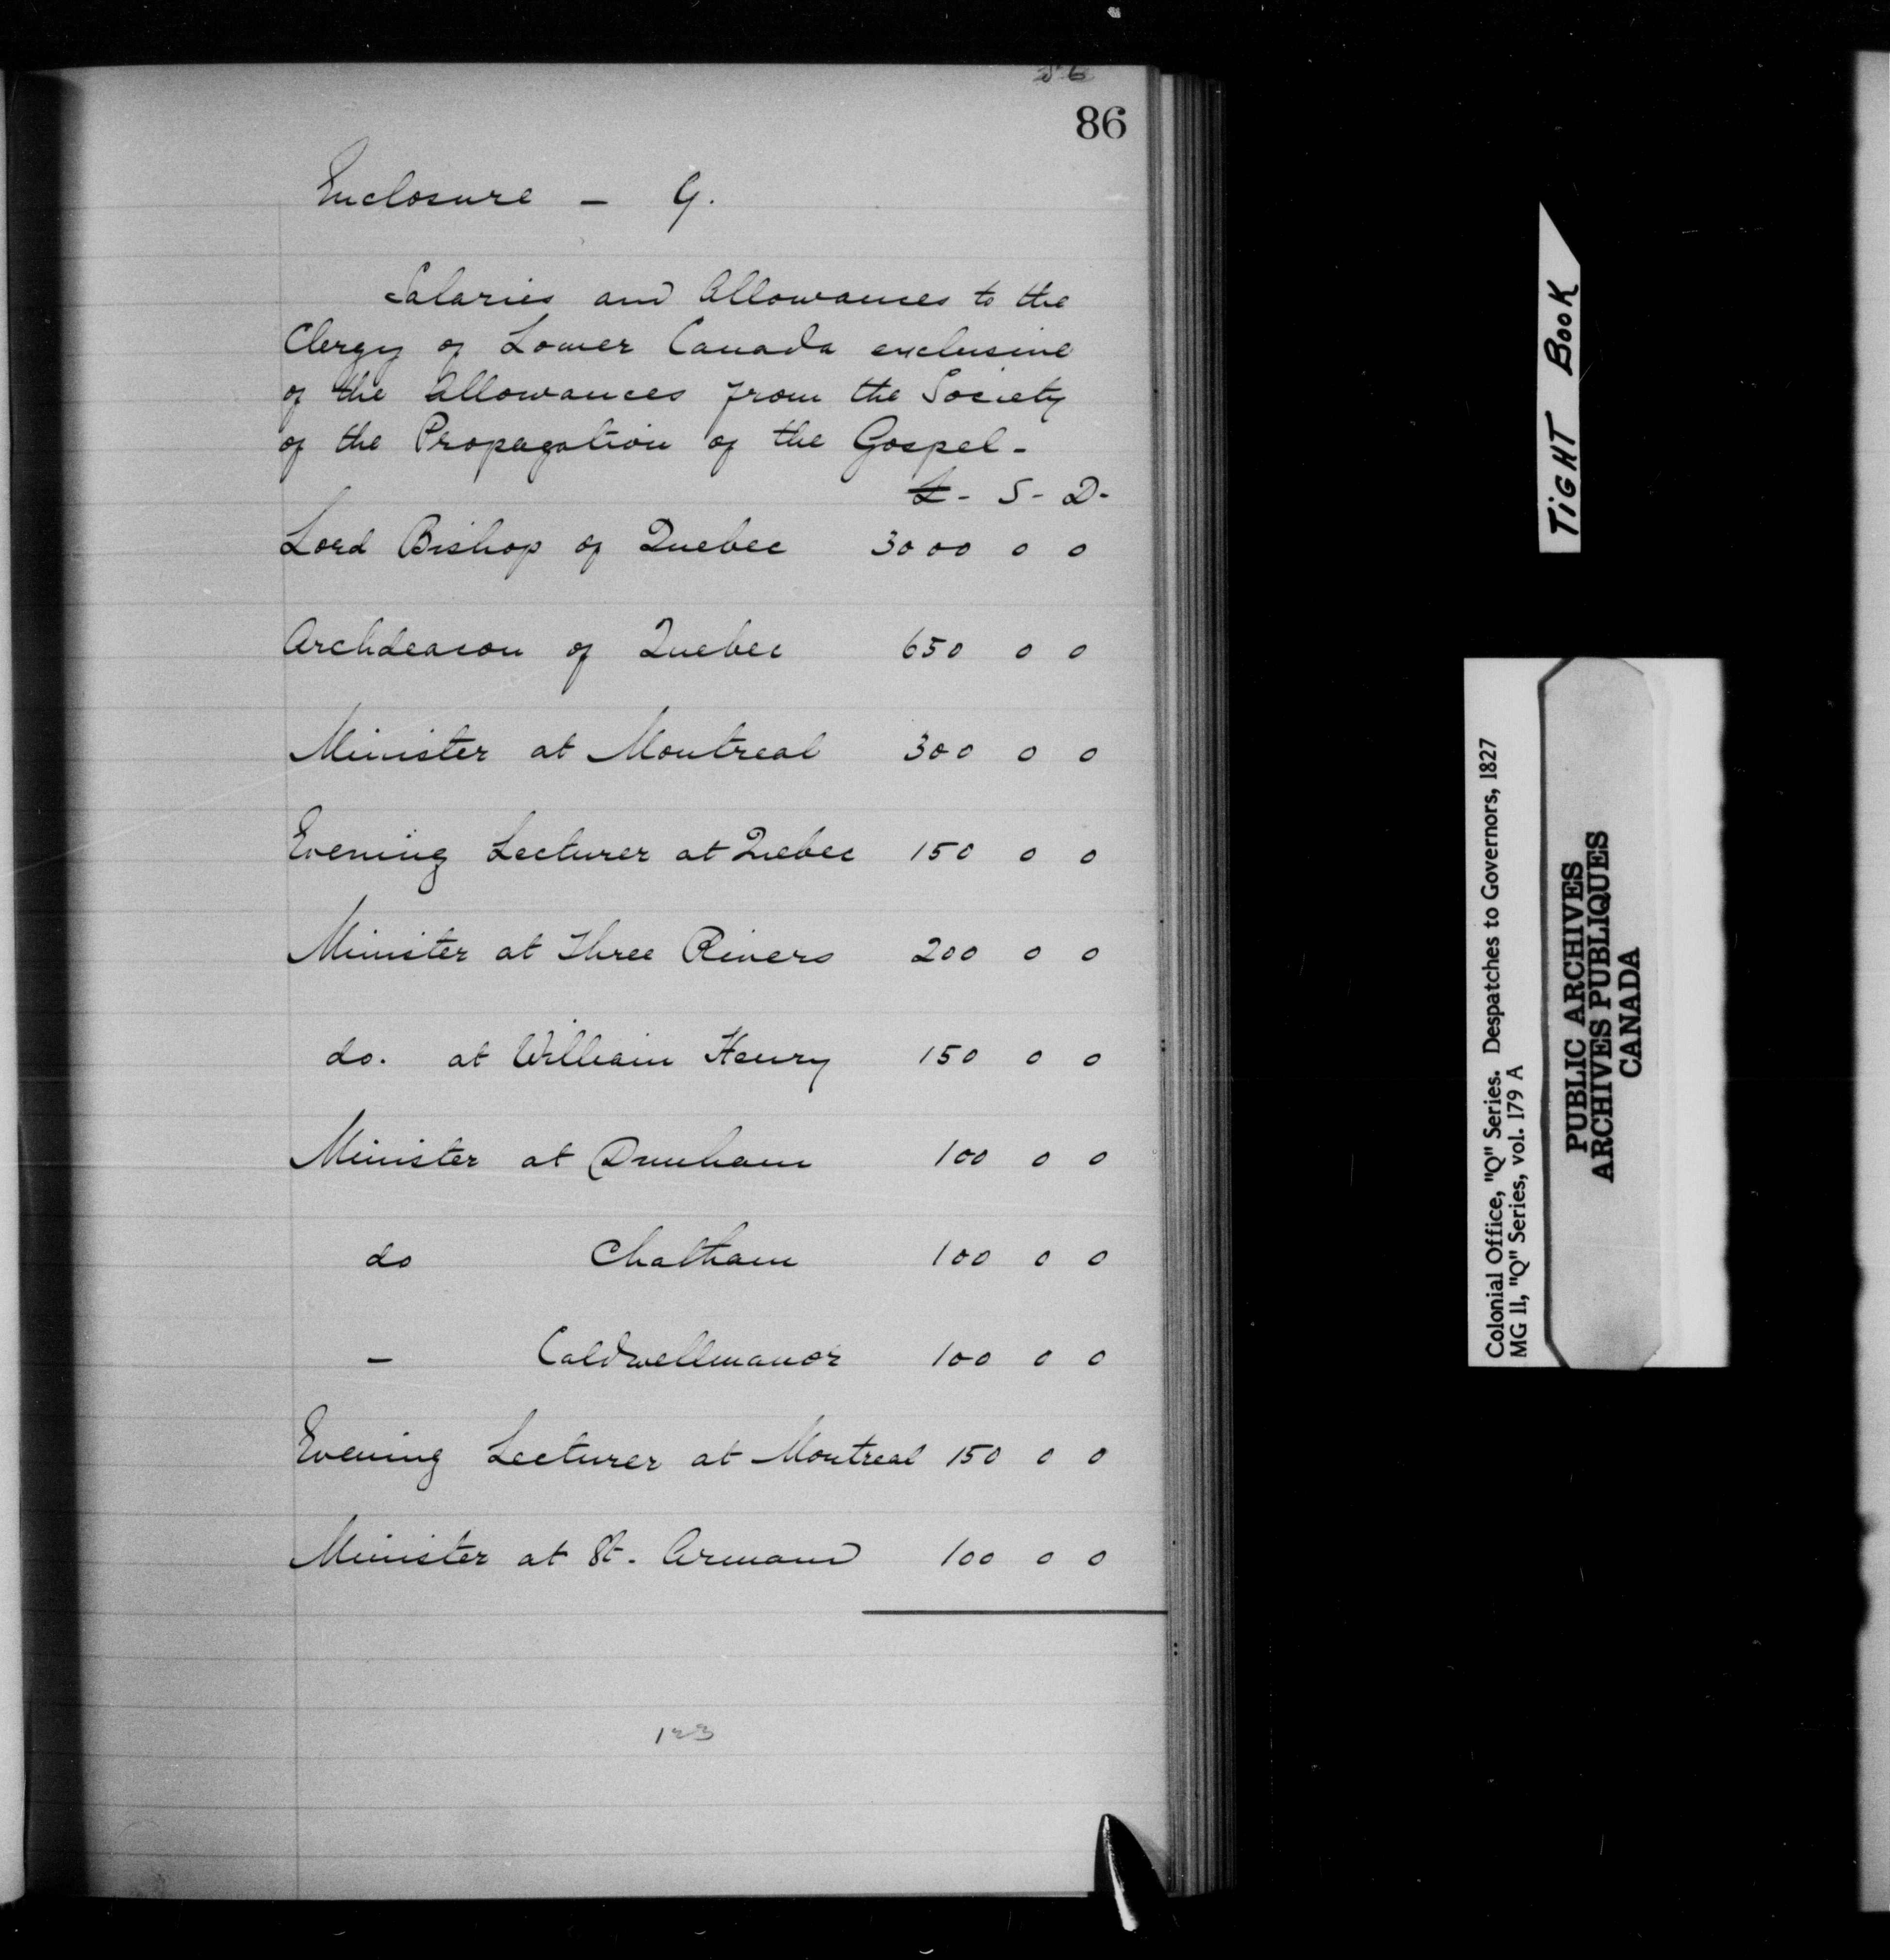 86
86
Enclosure - G.
Salaries and Allowances to the
Clergy of Lower Canada exclusive
of the Allowances from the Society
of the Propagation of the Gospel -
£ - S - D -
Lord Bishop of Quebec 3000 0 0
Archdeacon of Quebec 650 0 0
Minister at Montreal 300 0 0
Evening Lecturer at Quebec 150 0 0
Minister at Three Rivers 200 0 0
do. at William Henry 150 0 0
Minister at Dunham 100 0 0
do Chatham 100 0 0
- Caldwellmanor 100 0 0
Evening Lecturer at Montreal 150 0 0
Minister at St. Armand 100 0 0
123
TIGHT BOOK
Colonial Office, "Q" Series. Despatches to Governors, 1827
MG 11, "Q" Series, vol. 179 A
PUBLIC ARCHIVES
ARCHIVES PUBLIQUES
CANADA